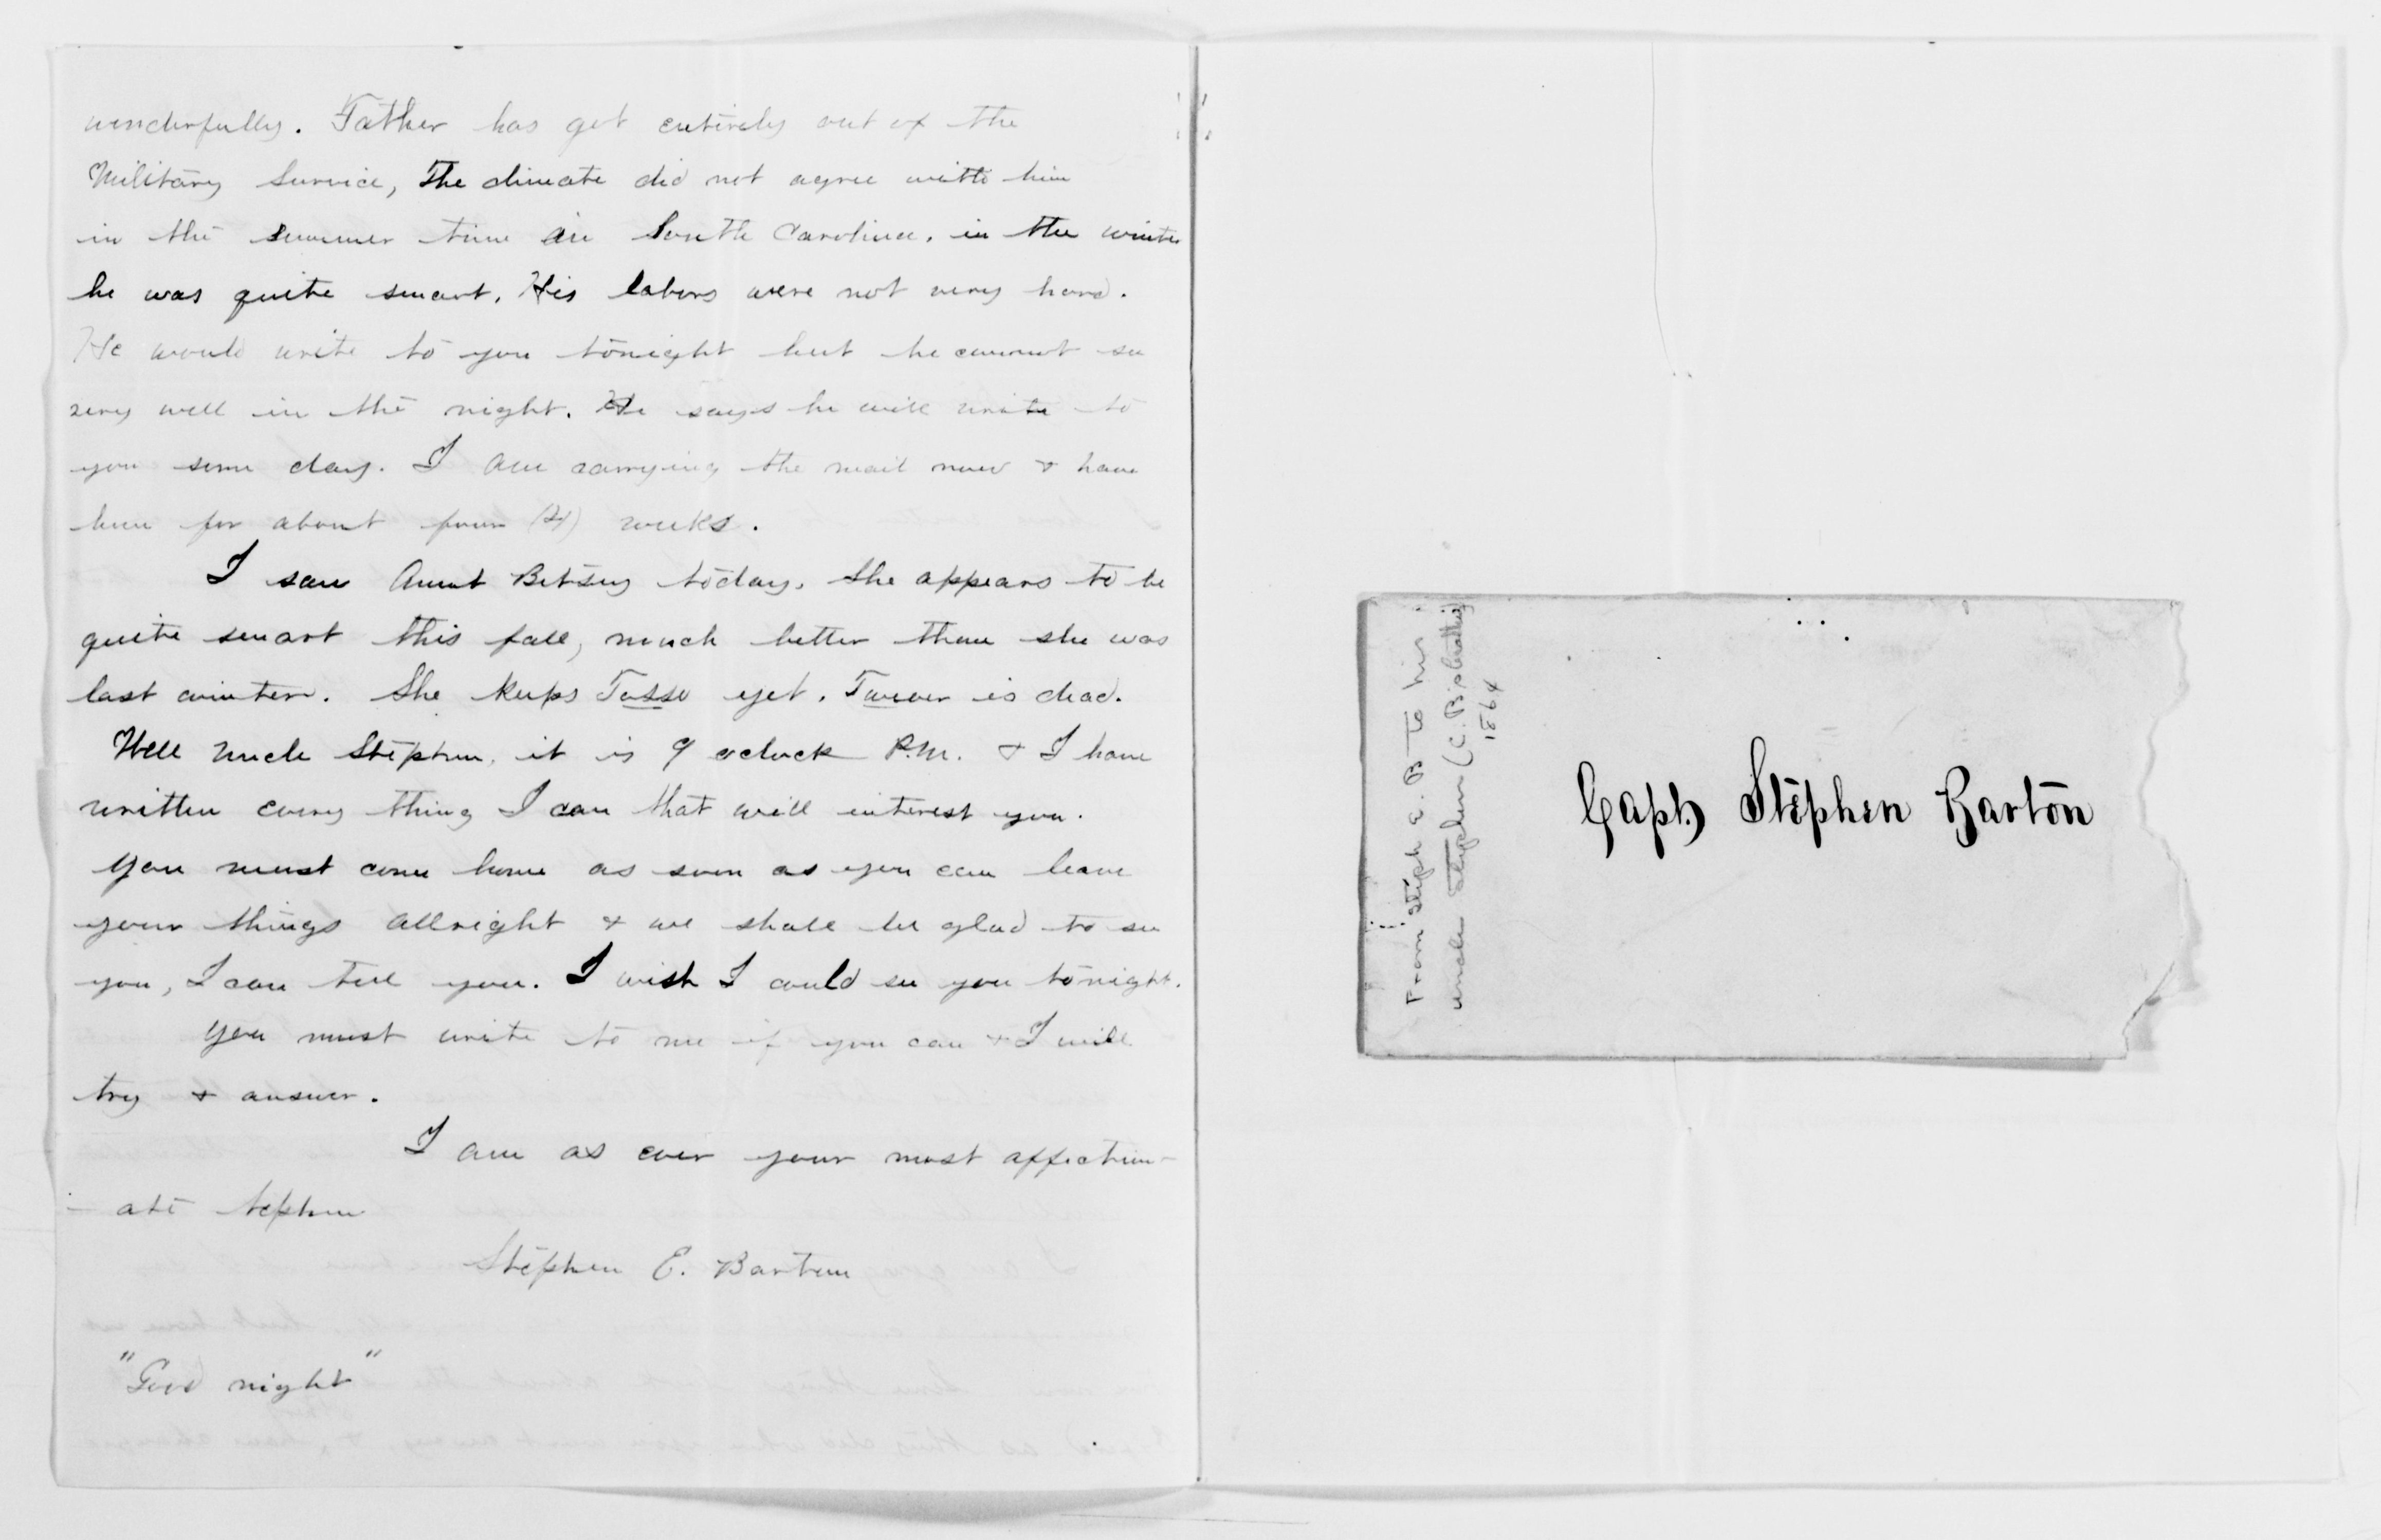 wonderfully. Father has got entirely out of the
Military Service, The climate did not agree with him
in the summer time in South Carolina. in the winter
he was quite smart. His labors were not very hard.
He would write to you tonight but he cannot see
very well in the night. He says he will write to
you some day. I am carrying the mail now & have
been for about four (4) weeks.
I saw Aunt Betsey today. She appears to be
quite smart this fall, much better than she was
last winter. She keeps Tasso yet. is dead.
Well Uncle Stephen, it is 9 oclock P.M. & I have
written every thing I can that will interest you.
You must come home as soon as you can leave
your things allright & we shall be glad to see
you, I can tell you. I wish I could see you tonight.
You must write to me if you can & I will
try & answer.
I am as ever your most affection-
-ate Nephew
Stephen E. Barton
"Good night"
From Steph E. B to his
uncle Stephen (C.B's brother)
1864
Capt Stephen Barton